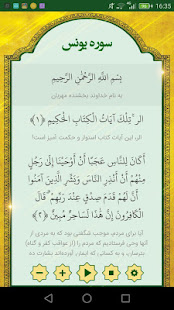 16:35
سوره یونس
بِسْمِ اللَّهِ الرَّحْمَٰنِ الرَّحِيمِ
به نام خداوند بخشنده مهربان
الر ۚ تِلْكَ آيَاتُ الْكِتَابِ الْحَكِيمِ ﴿١﴾
الر، این آیات کتاب استوار و حکمت آمیز است!
أَكَانَ لِلنَّاسِ عَجَبًا أَنْ أَوْحَيْنَا إِلَىٰ رَجُلٍ
مِنْهُمْ أَنْ أَنْذِرِ النَّاسَ وَبَشِّرِ الَّذِينَ آمَنُوا
أَنَّ لَهُمْ قَدَمَ صِدْقٍ عِنْدَ رَبِّهِمْ ۗ قَالَ
الْكَافِرُونَ إِنَّ هَٰذَا لَسَاحِرٌ مُبِينٌ ﴿٢﴾
آیا برای مردم، موجب شگفتی بود که به مردی از
آنها وحی فرستادیم که مردم را (از عواقب کفر و گناه)
بترسان، و به کسانی که ایمان آورده‌اند بشارت ده